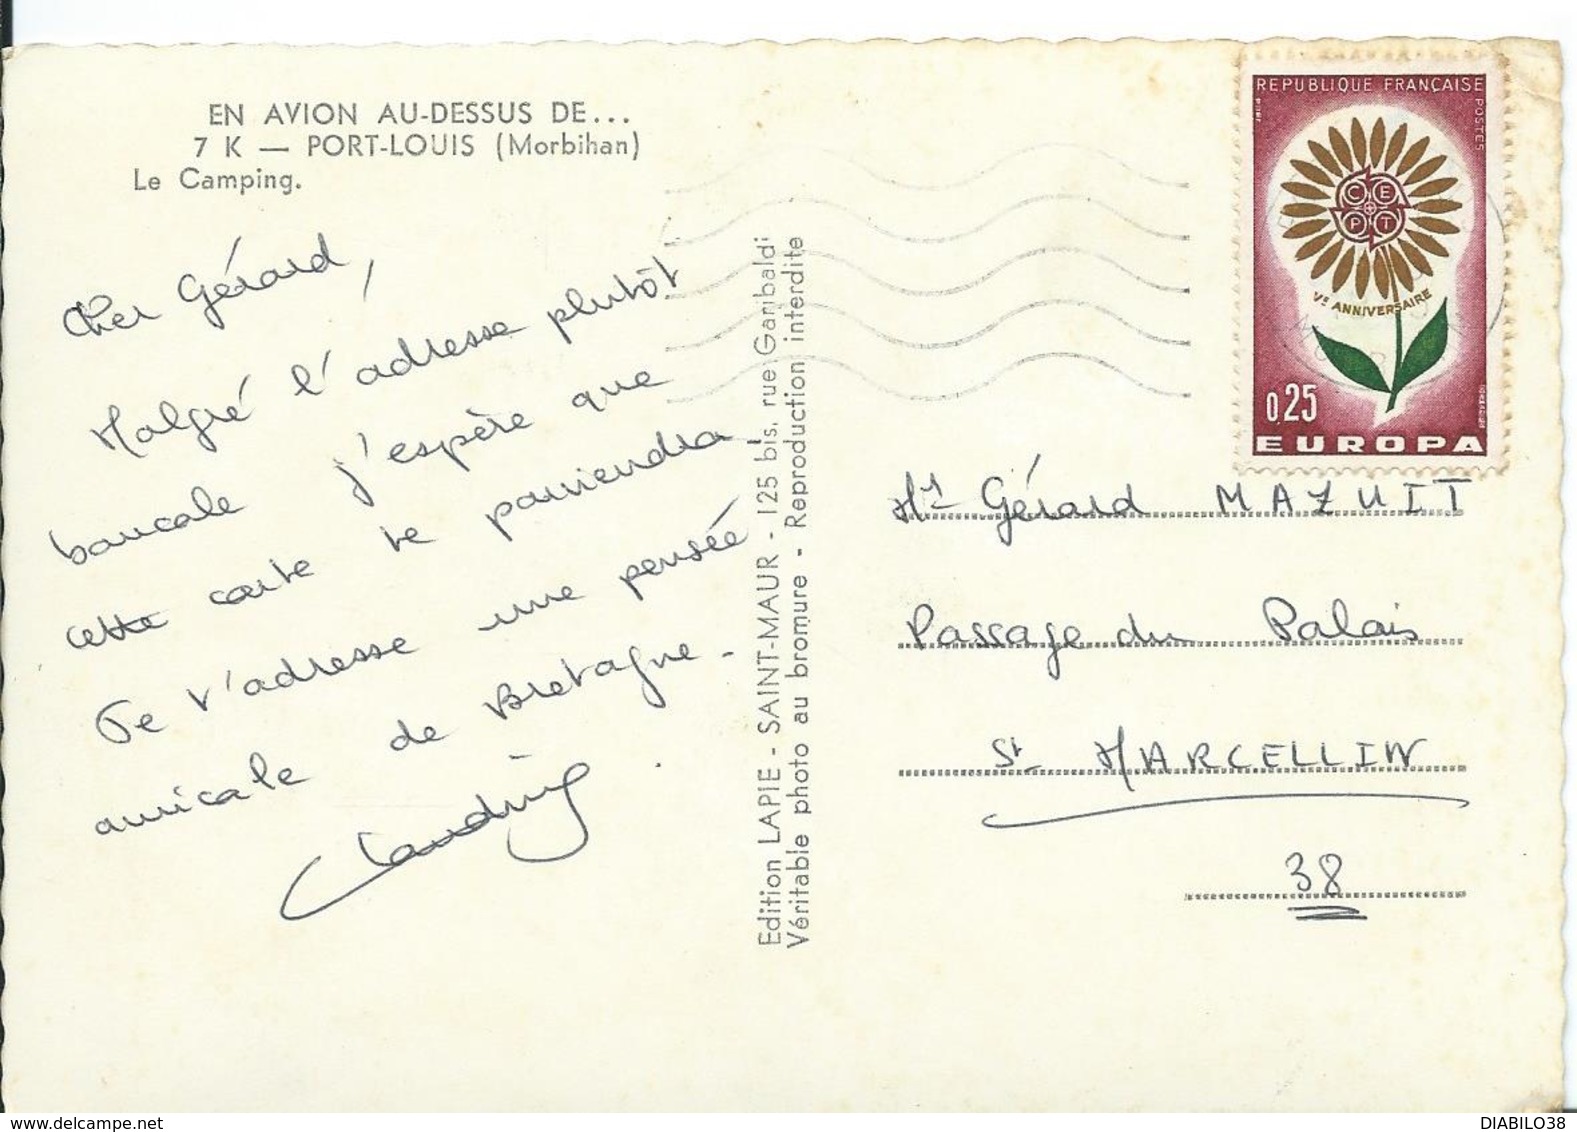 EN AVION AU-DESSUS DE...
7 K — PORT-LOUIS (Morbihan)
Le Camping.
Cher Gérard,
Malgré l'adresse plutôt
bancale j'espère que
cette carte te parviendra
Je t'adresse une pensée
amicale de Bretagne.
Edition LAPIE - SAINT-MAUR - 125 bis, rue Garibaldi
Véritable photo au bromure - Reproduction interdite
REPUBLIQUE FRANÇAISE
POSTES
C E
P T
Vᵉ ANNIVERSAIRE
0,25
EUROPA
Mr Gérard MAZUIT
Passage du Palais
St MARCELLIN
38
DIABILO38